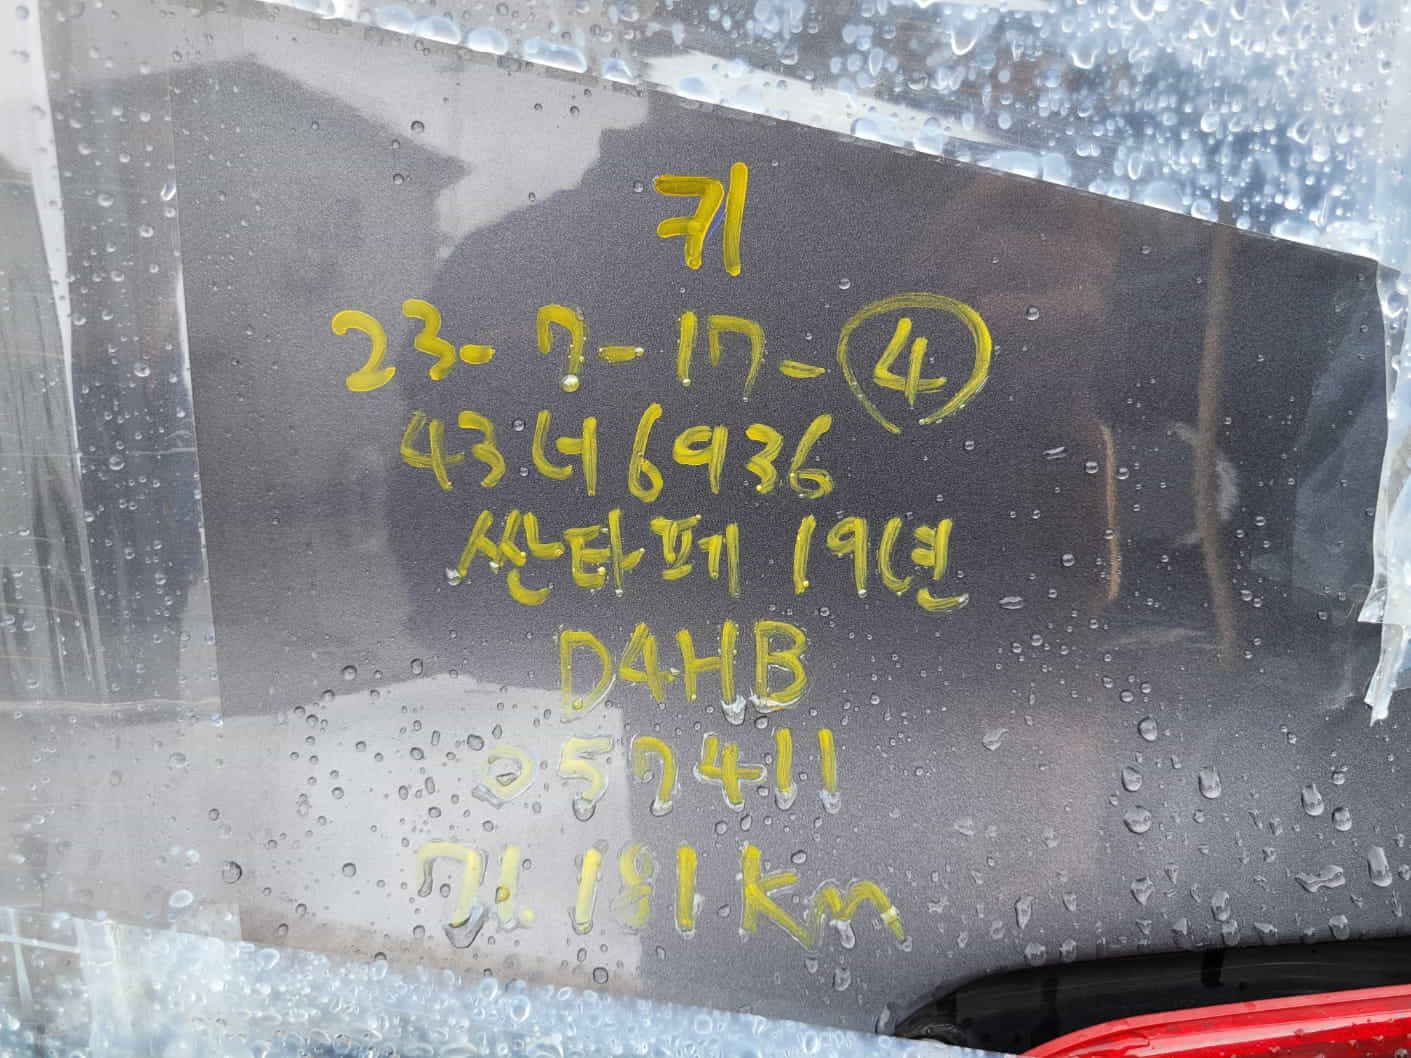 키
23-7-17-④
43너6936
싼타페 19년
D4HB
057411
71.181Km